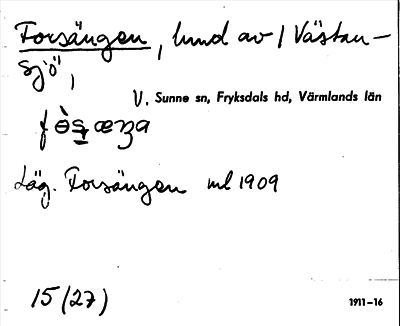 Forsängen, lund av 1 Västan-
sjö,
V. Sunne sn, Fryksdals hd, Värmlands län
Läg. Forsängen ml 1909
15 (27)
1911-16